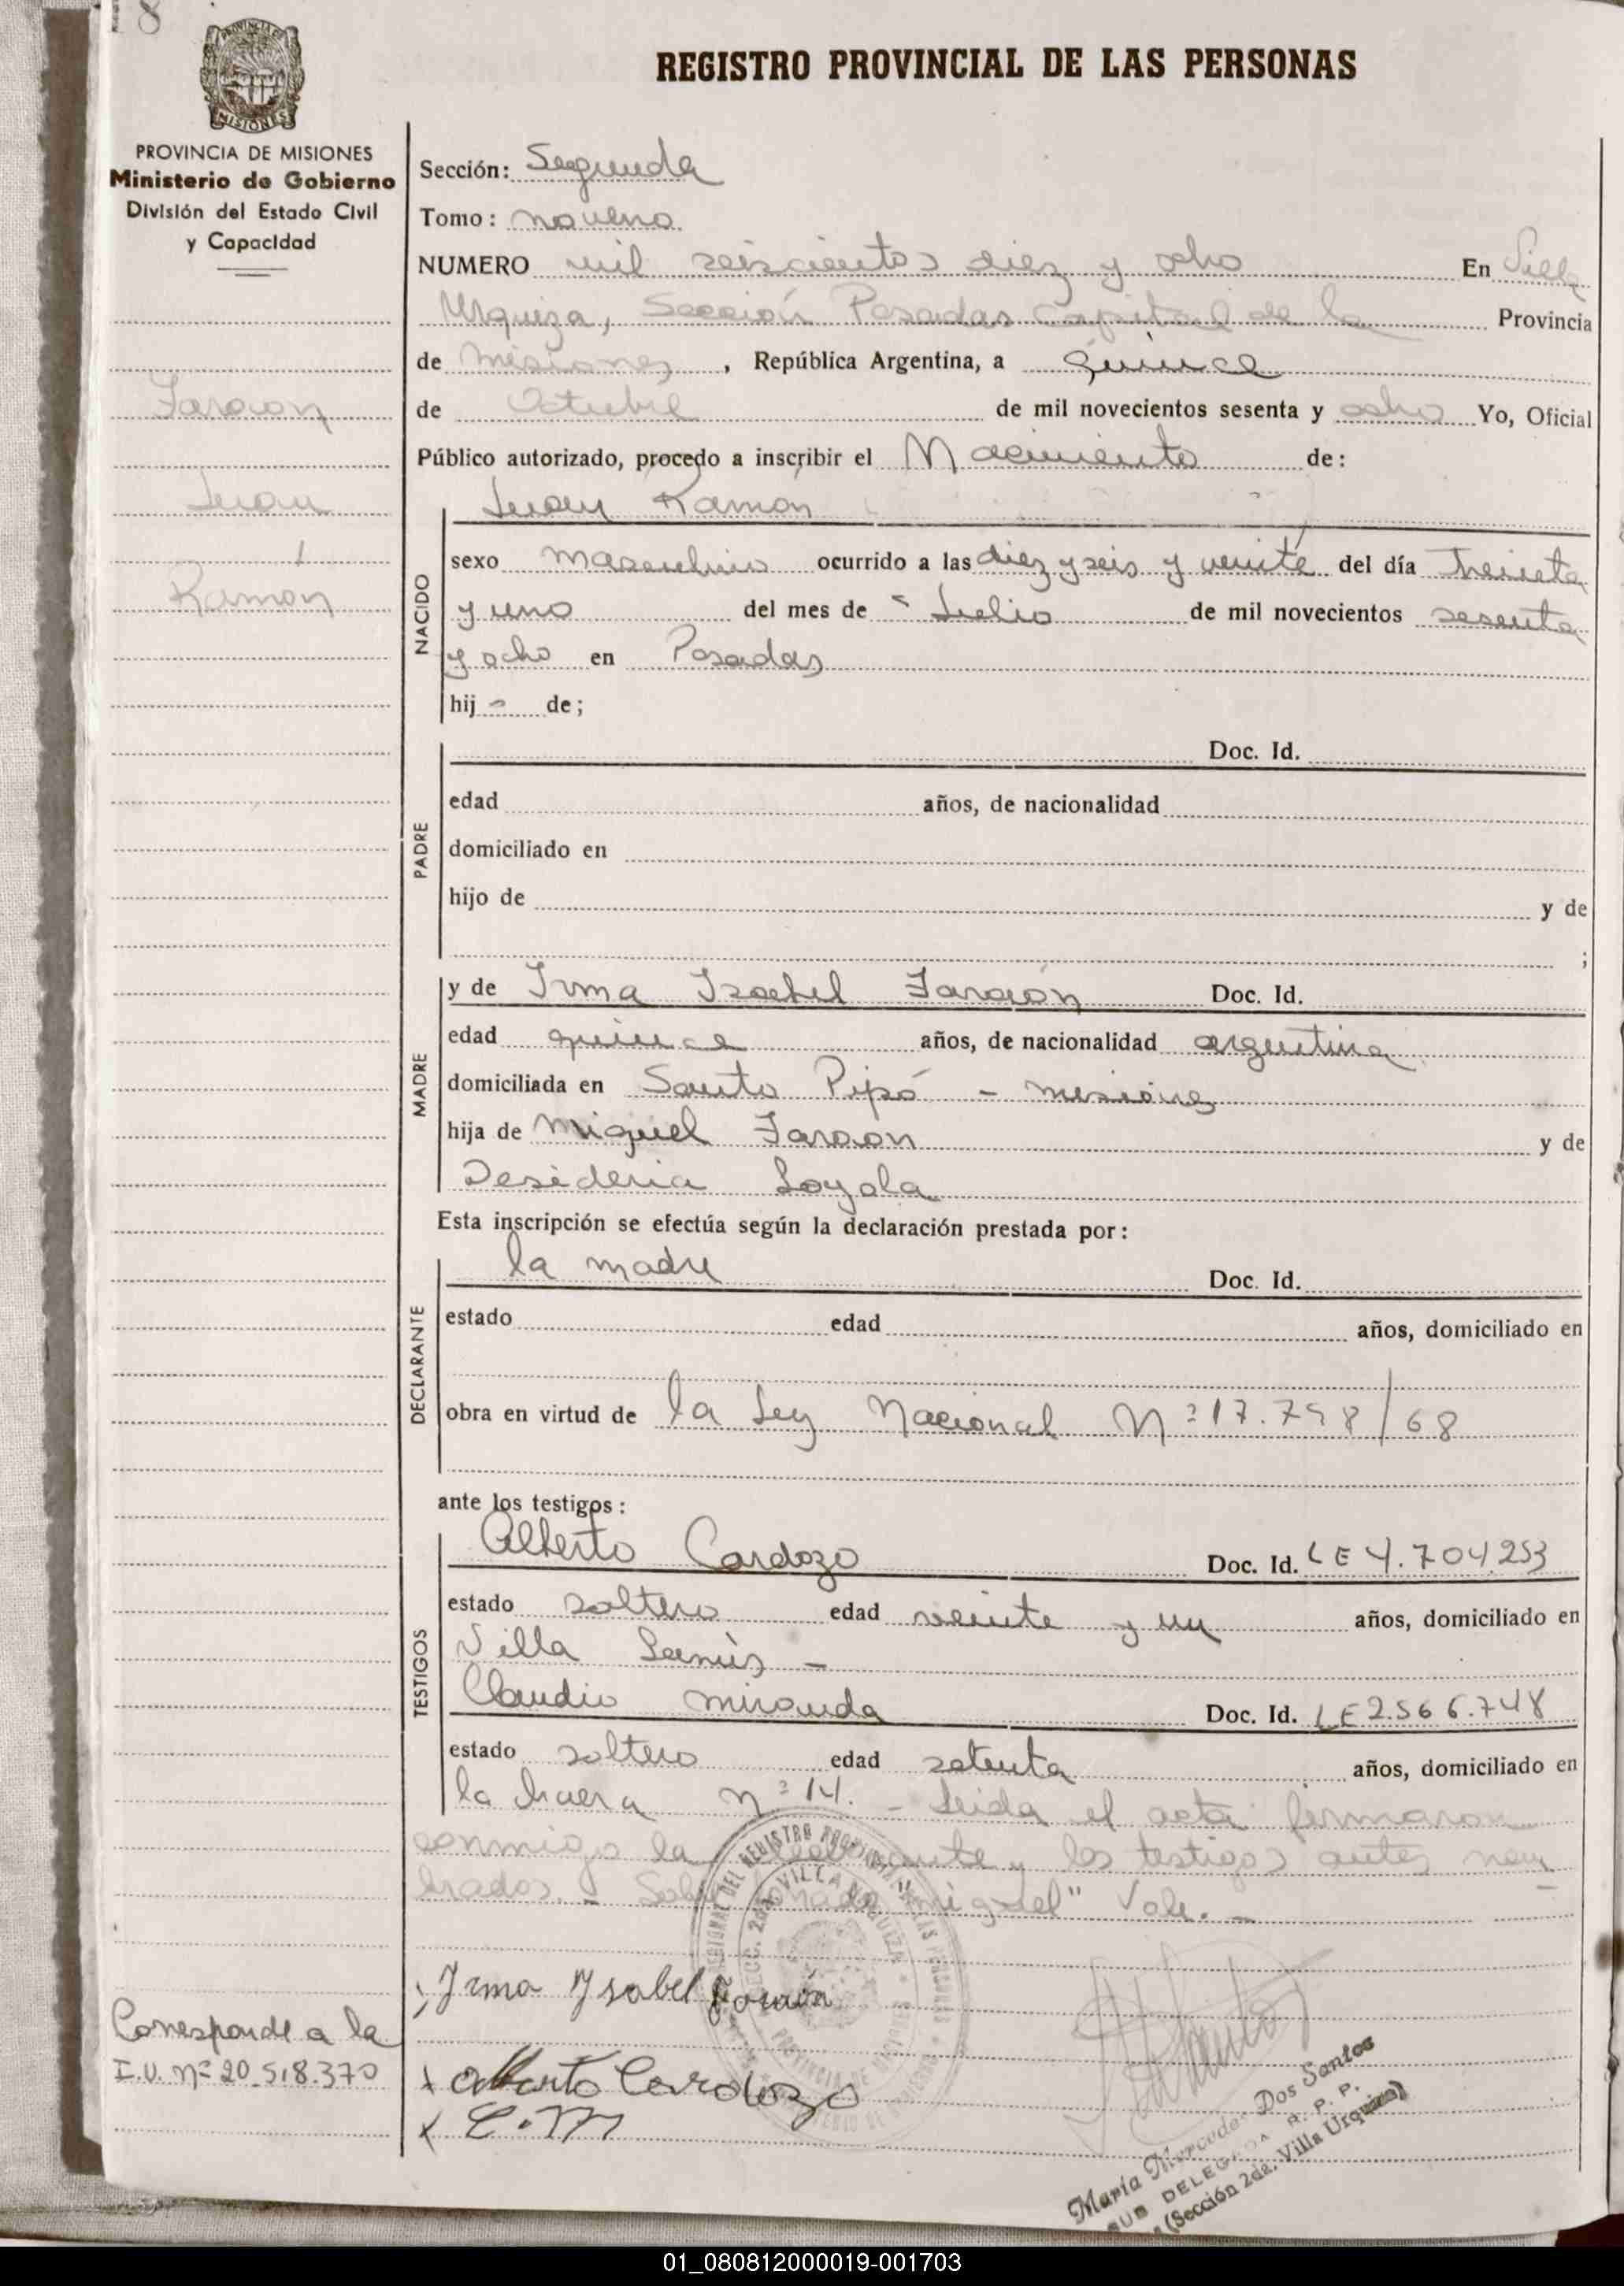 8
REGISTRO PROVINCIAL DE LAS PERSONAS
MISIONES
PROVINCIA DE MISIONES
Ministerio de Gobierno
División del Estado Civil
y Capacidad
Sección: Segunda
Tomo: noveno
NUMERO mil seiscientos diez y ocho En Villa
Urquiza, Sección Posadas Capital de la Provincia
de Misiones, República Argentina, a quince
de Octubre de mil novecientos sesenta y ocho Yo, Oficial
Público autorizado, procedo a inscribir el Nacimiento de:
Juan Ramón
sexo masculino ocurrido a las diez y seis y veinte del día treinta
y uno del mes de Julio de mil novecientos sesenta
y ocho en Posadas
hij de;
NACIDO
Juan
Ramón
Doc. Id.
edad años, de nacionalidad
domiciliado en
hijo de y de
;
PADRE
y de Irma Isabel Doc. Id.
edad quince años, de nacionalidad argentina
domiciliada en Santo Pipó - misiones
hija de Miguel y de
Desideria Loyola
MADRE
Esta inscripción se efectúa según la declaración prestada por:
la madre Doc. Id.
estado edad años, domiciliado en
obra en virtud de la Ley Nacional Nº 17.798/68
DECLARANTE
ante los testigos:
Alberto Cardozo Doc. Id. LE 4.704.253
estado soltero edad veinte y un años, domiciliado en
Villa Lanús -
Claudio Miranda Doc. Id. LE 2.566.748
estado soltero edad setenta años, domiciliado en
la chacra nº 14. - Leida el acta firmaron
TESTIGOS
conmigo la declarante y los testigos antes nom
brados. - Sobre miguel" Vale. -
Irma Ysabel
Alberto Cardozo
C.M
Corresponde a la
I.U. Nº 20.518.370
María Mercedes Dos Santos
SUB DELEGADA R. P. P.
(Sección 2da. Villa Urquiza)
01_080812000019-001703